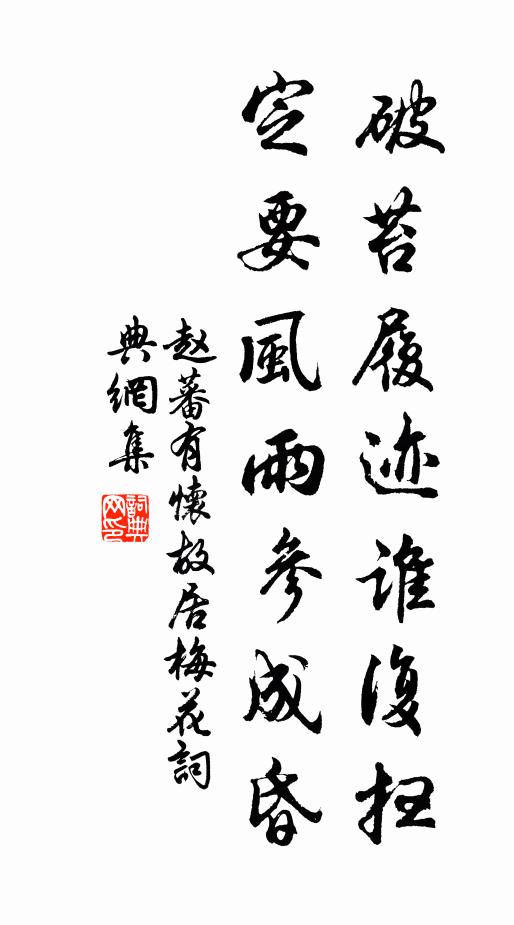 破苔履迹谁復扫
定要風雨參成昏
赵蕃有懷故居梅花詞
典網集
詞典网印